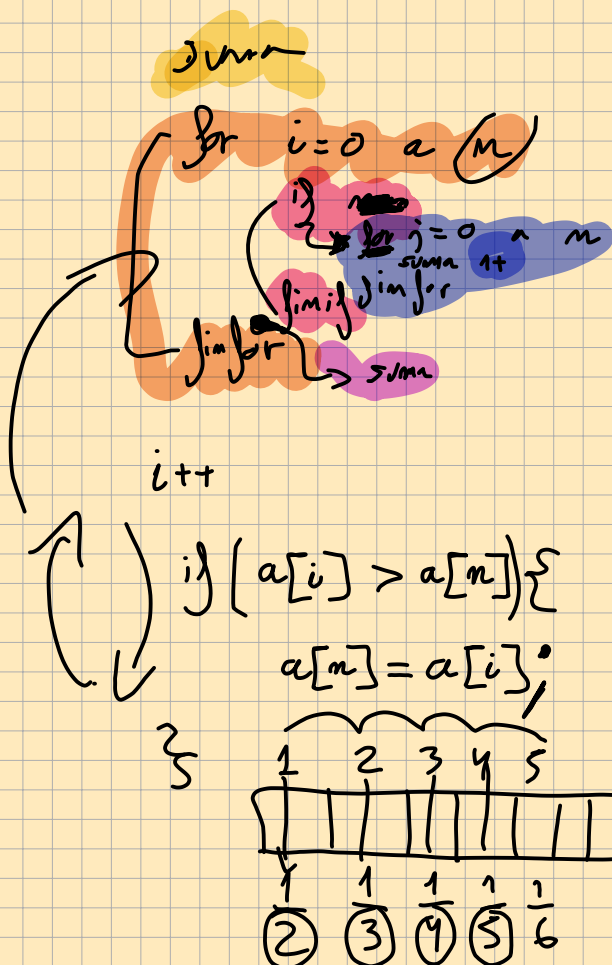 suma
for i=0 a n
if
for j=0 a n
suma 1+
finif finfor
finfor
suma
i++
if (a[i] > a[n]) {
a[n] = a[i];
}
1 2 3 4 5
1/2 1/3 1/4 1/5 1/6